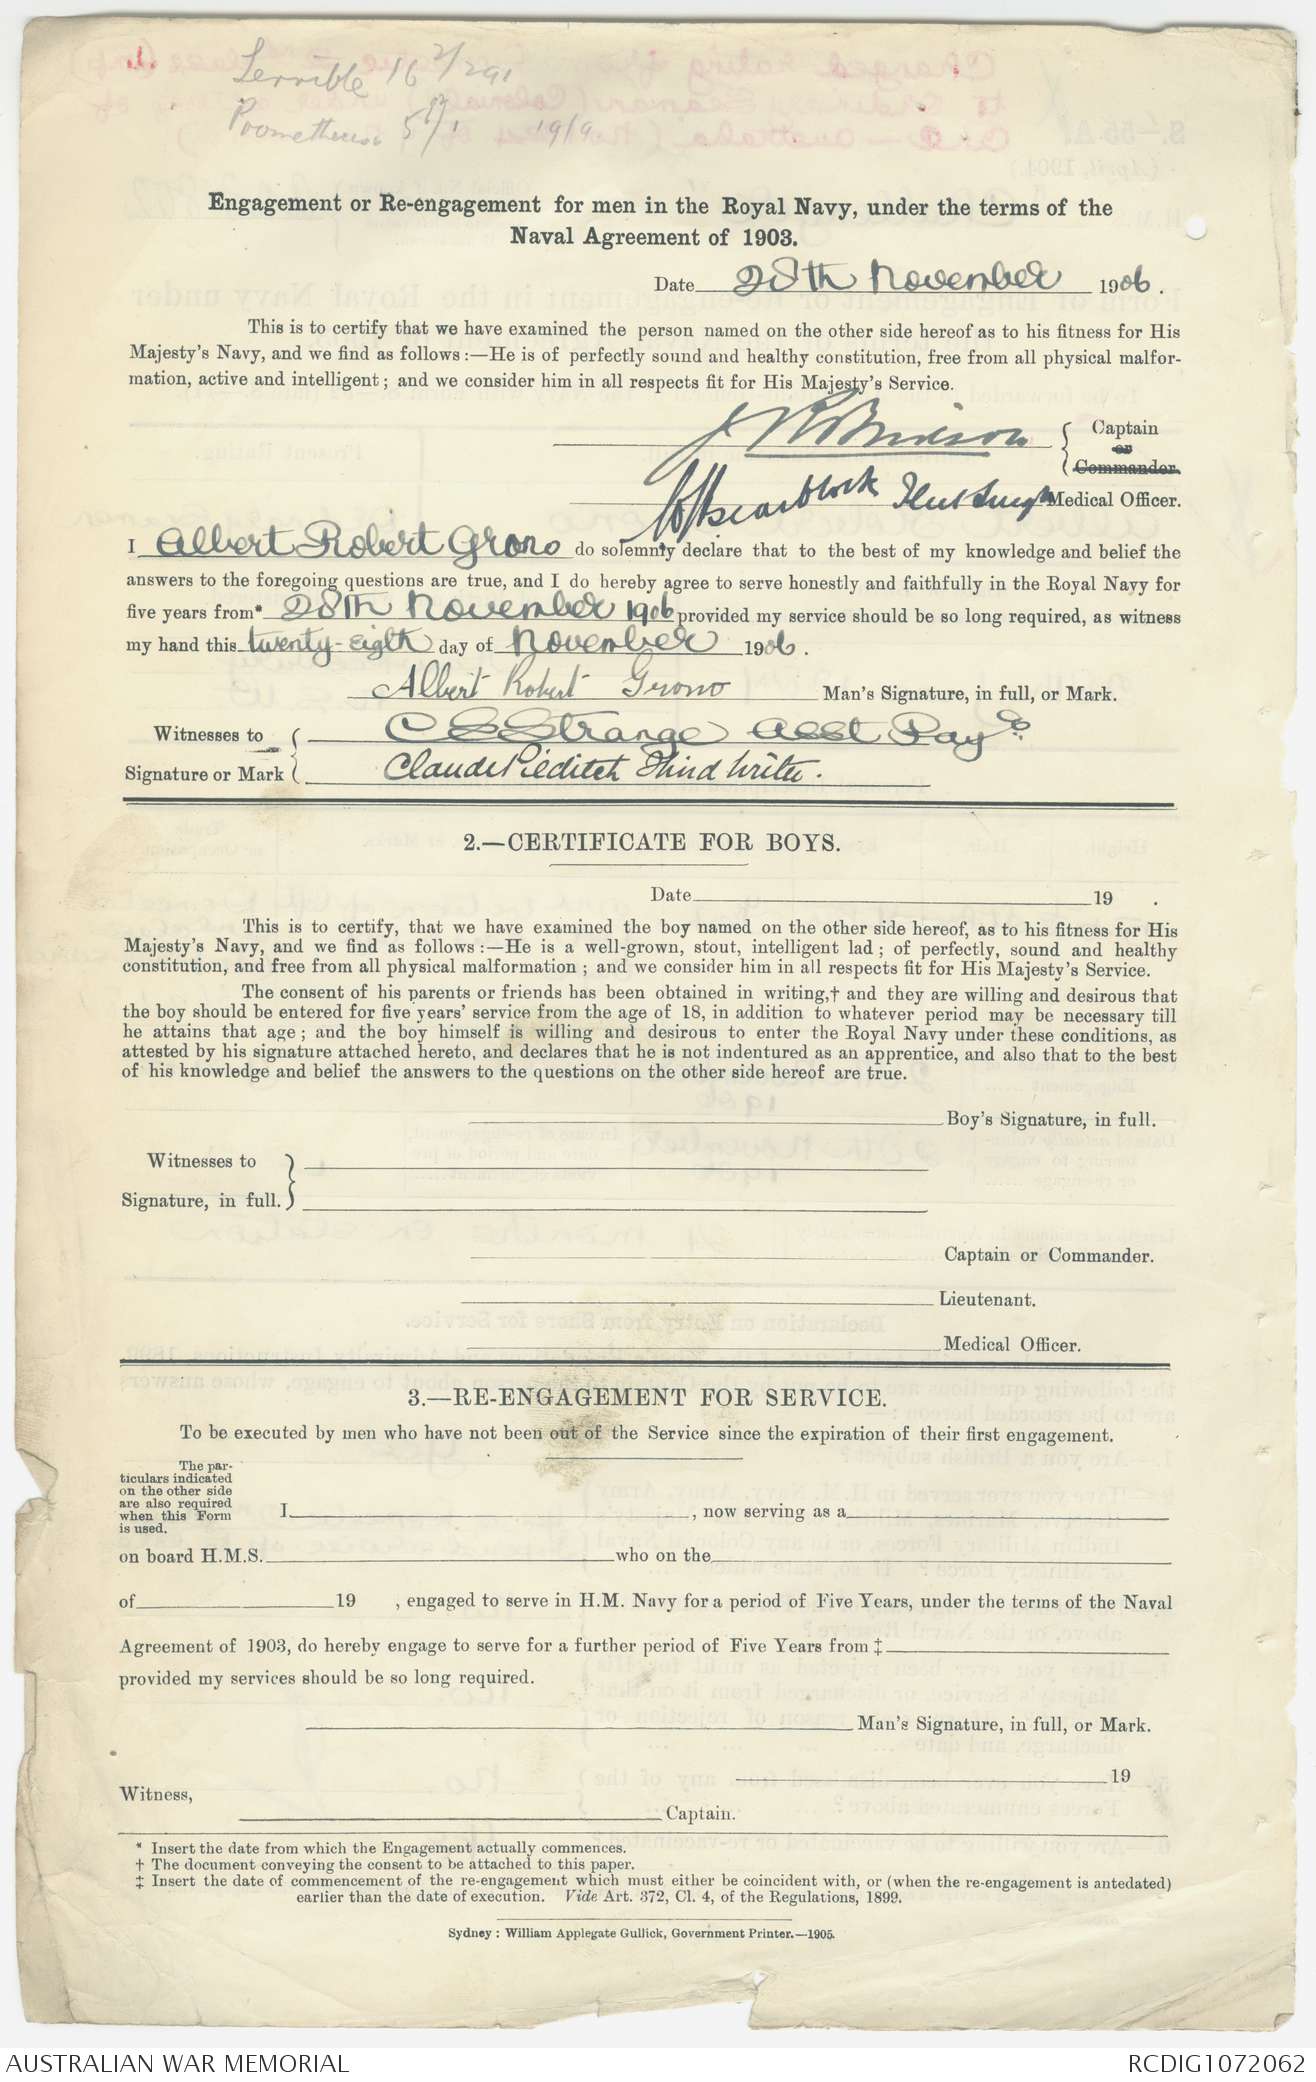 Terrible 16
Prometheus 5
Engagement or Re-engagement for men in the Royal Navy, under the terms of the
Naval Agreement of 1903.
Date 28th November 1906.
This is to certify that we have examined the person named on the other side hereof as to his fitness for His
Majesty's Navy, and we find as follows:—He is of perfectly sound and healthy constitution, free from all physical malfor-
mation, active and intelligent; and we consider him in all respects fit for His Majesty's Service.
Captain
or
Commander.
Medical Officer.
I Albert Robert Grono do solemnly declare that to the best of my knowledge and belief the
answers to the foregoing questions are true, and I do hereby agree to serve honestly and faithfully in the Royal Navy for
five years from* 28th November 1906 provided my service should be so long required, as witness
my hand this twenty-eigth day of November 1906.
Albert Robert Grono Man's Signature, in full, or Mark.
Witnesses to
C E Strange Asst Pay
Signature or Mark
Claude Pilditch Third Writer.
2.—CERTIFICATE FOR BOYS.
Date 19 .
This is to certify, that we have examined the boy named on the other side hereof, as to his fitness for His
Majesty's Navy, and we find as follows:—He is a well-grown, stout, intelligent lad; of perfectly, sound and healthy
constitution, and free from all physical malformation; and we consider him in all respects fit for His Majesty's Service.
The consent of his parents or friends has been obtained in writing,† and they are willing and desirous that
the boy should be entered for five years' service from the age of 18, in addition to whatever period may be necessary till
he attains that age; and the boy himself is willing and desirous to enter the Royal Navy under these conditions, as
attested by his signature attached hereto, and declares that he is not indentured as an apprentice, and also that to the best
of his knowledge and belief the answers to the questions on the other side hereof are true.
Boy's Signature, in full.
Witnesses to
Signature, in full.
Captain or Commander.
Lieutenant.
Medical Officer.
3.—RE-ENGAGEMENT FOR SERVICE.
To be executed by men who have not been out of the Service since the expiration of their first engagement.
The par-
ticulars indicated
on the other side
are also required
when this Form
is used.
I , now serving as a
on board H.M.S. who on the
of 19 , engaged to serve in H.M. Navy for a period of Five Years, under the terms of the Naval
Agreement of 1903, do hereby engage to serve for a further period of Five Years from ‡
provided my services should be so long required.
Man's Signature, in full, or Mark.
19
Witness,
Captain.
* Insert the date from which the Engagement actually commences.
† The document conveying the consent to be attached to this paper.
‡ Insert the date of commencement of the re-engagement which must either be coincident with, or (when the re-engagement is antedated)
earlier than the date of execution. Vide Art. 372, Cl. 4, of the Regulations, 1899.
Sydney: William Applegate Gullick, Government Printer.—1905.
AUSTRALIAN WAR MEMORIAL
RCDIG1072062